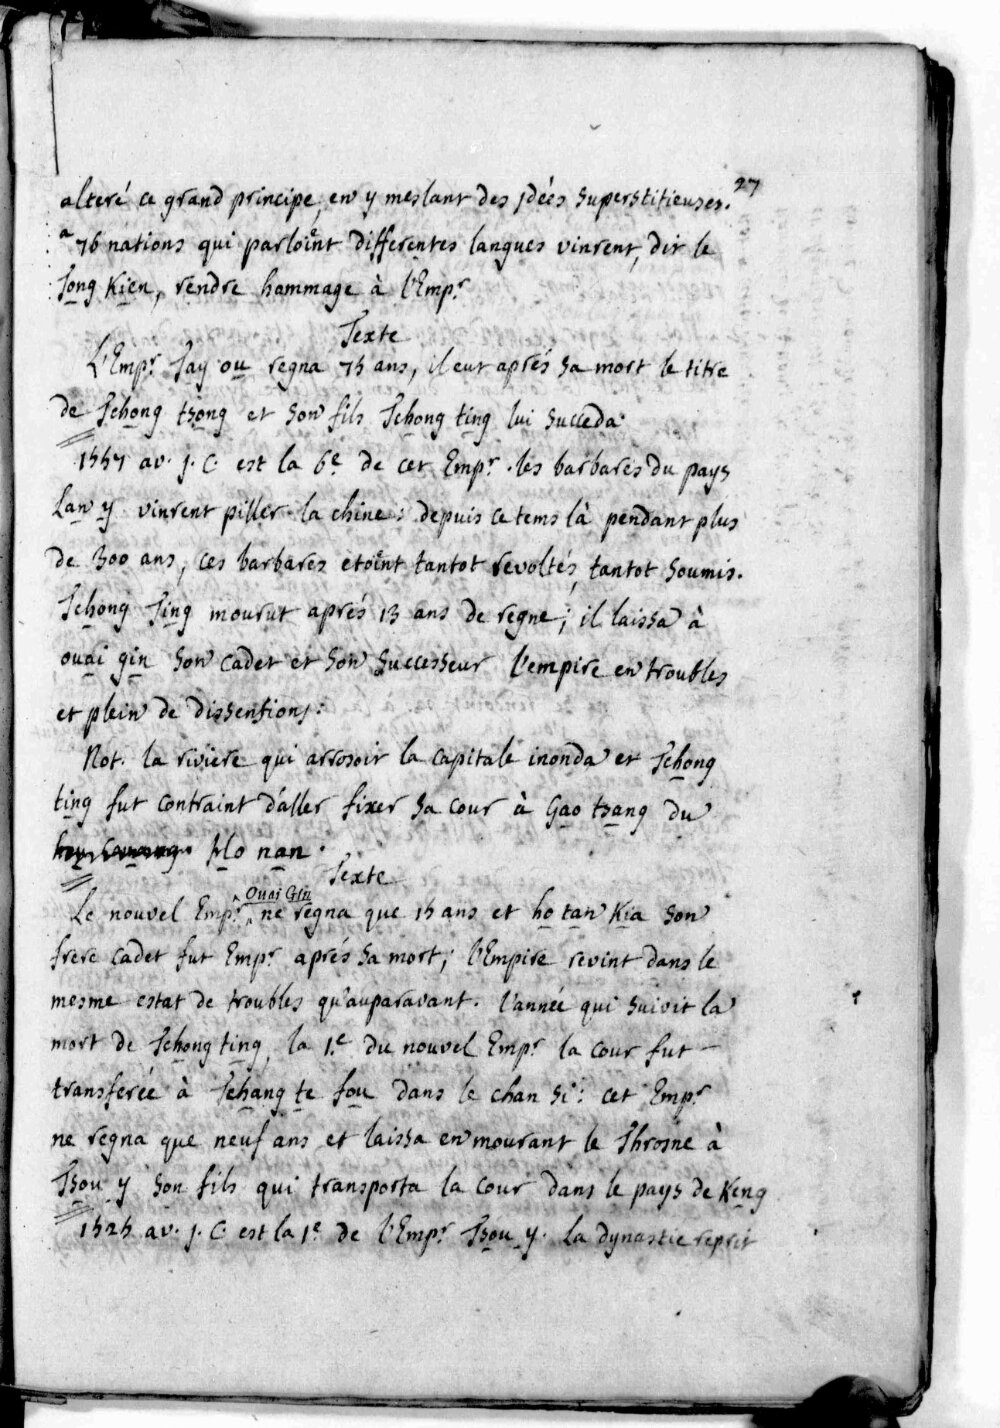 27
alteré ce grand principe, en y meslant des jdées superstitieuses.
a 76 nations qui parloint differentes langues vinrent, dit le
Tong Kien, rendre hommage à l'Emp.r
Texte
L'Emp.r Tay ou regna 75 ans, il eut aprés sa mort le titre
de Tchong tsong et son fils Tchong ting lui succeda.
1557 av. J. C. est la 6.e de cet Emp.r. les barbares du pays
Lan y vinrent piller la chine: depuis ce tems là pendant plus
de 300 ans, ces barbares étoint tantot revoltés, tantot soumis.
Tchong Ting mourut aprés 13 ans de regne; il laissa à
ouai gin son cadet et son successeur l'empire en troubles
et plein de dissensions:
Not. la riviere qui arrosoit la capitale inonda et Tchong
ting fut contraint d'aller fixer sa cour à Gao tsang du
Ho nan.
Texte
Le nouvel Emp.r Ouai Gin ne regna que 15 ans et ho tan Kia son
frere cadet fut Emp.r aprés sa mort; l'Empire revint dans le
mesme estat de troubles qu'auparavant. l'année qui suivit la
mort de Tchong ting, la 1.e du nouvel Emp.r la cour fut
transferée à Tchang te fou dans le chan si: cet Emp.r
ne regna que neuf ans et laissa en mourant le Throsne à
Tsou y son fils qui transporta la cour dans le pays de Keng
1525 av. J. C. est la 1.e de l'Emp.r Tsou y. La dynastie reprit